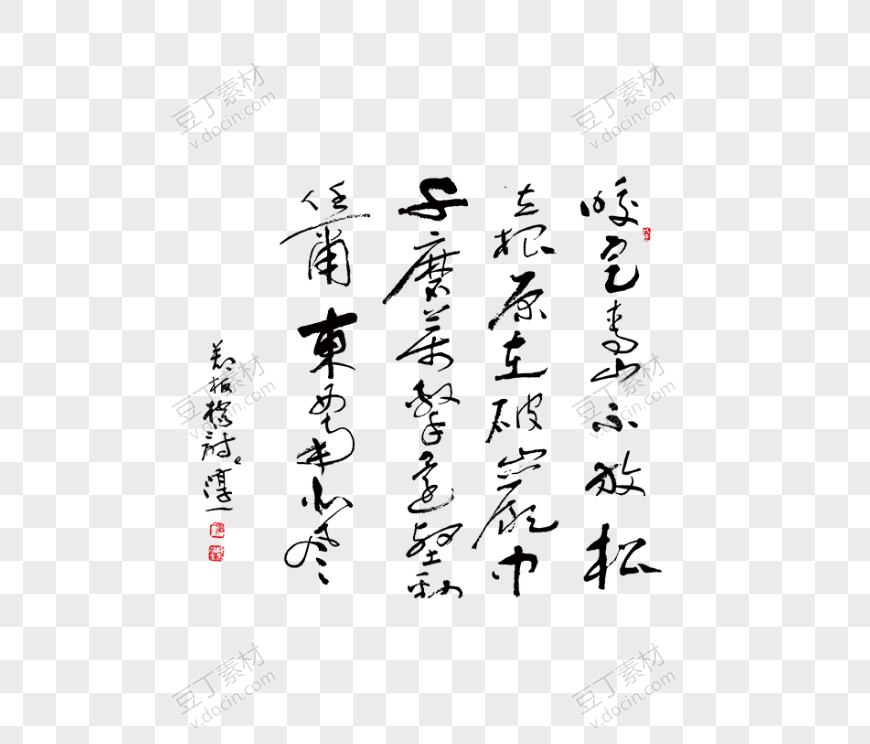 咬定青山不放松
立根原在破巖中
千磨萬擊還堅勁
任爾東西南北風
鄭板橋詩 淳一
豆丁素材
v.docin.com
豆丁素材
v.docin.com
豆丁素材
v.docin.com
豆丁素材
v.docin.com
豆丁素材
v.docin.com
豆丁素材
v.docin.com